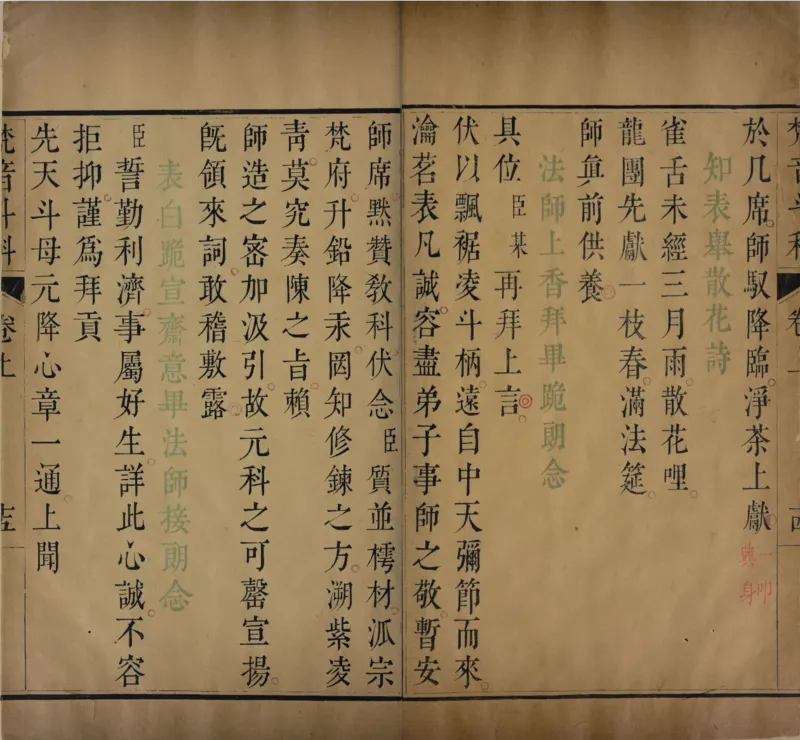 梵音斗科 卷上
於几席師馭降臨淨茶上獻 一叩興身
知表舉散花詩
雀舌未經三月雨散花哩
龍團先獻一枝春滿法筵
師眞前供養
法師上香拜畢跪朗念
具位臣某再拜上言
伏以飄裾凌斗柄遠自中天彌節而來
瀹茗表凡誠容盡弟子事師之敬暫安
師席默贊敎科伏念臣質並樗材泒宗
梵府升鉛降汞罔知修鍊之方溯紫凌
靑莫究奏陳之旨賴
師造之宻加汲引故元科之可罄宣揚
旣領來詞敢稽敷露
表白跪宣齋意畢法師接朗念
臣誓勤利濟事屬好生詳此心誠不容
拒抑謹爲拜貢
先天斗母元降心章一通上聞
梵音斗科 卷上 十五